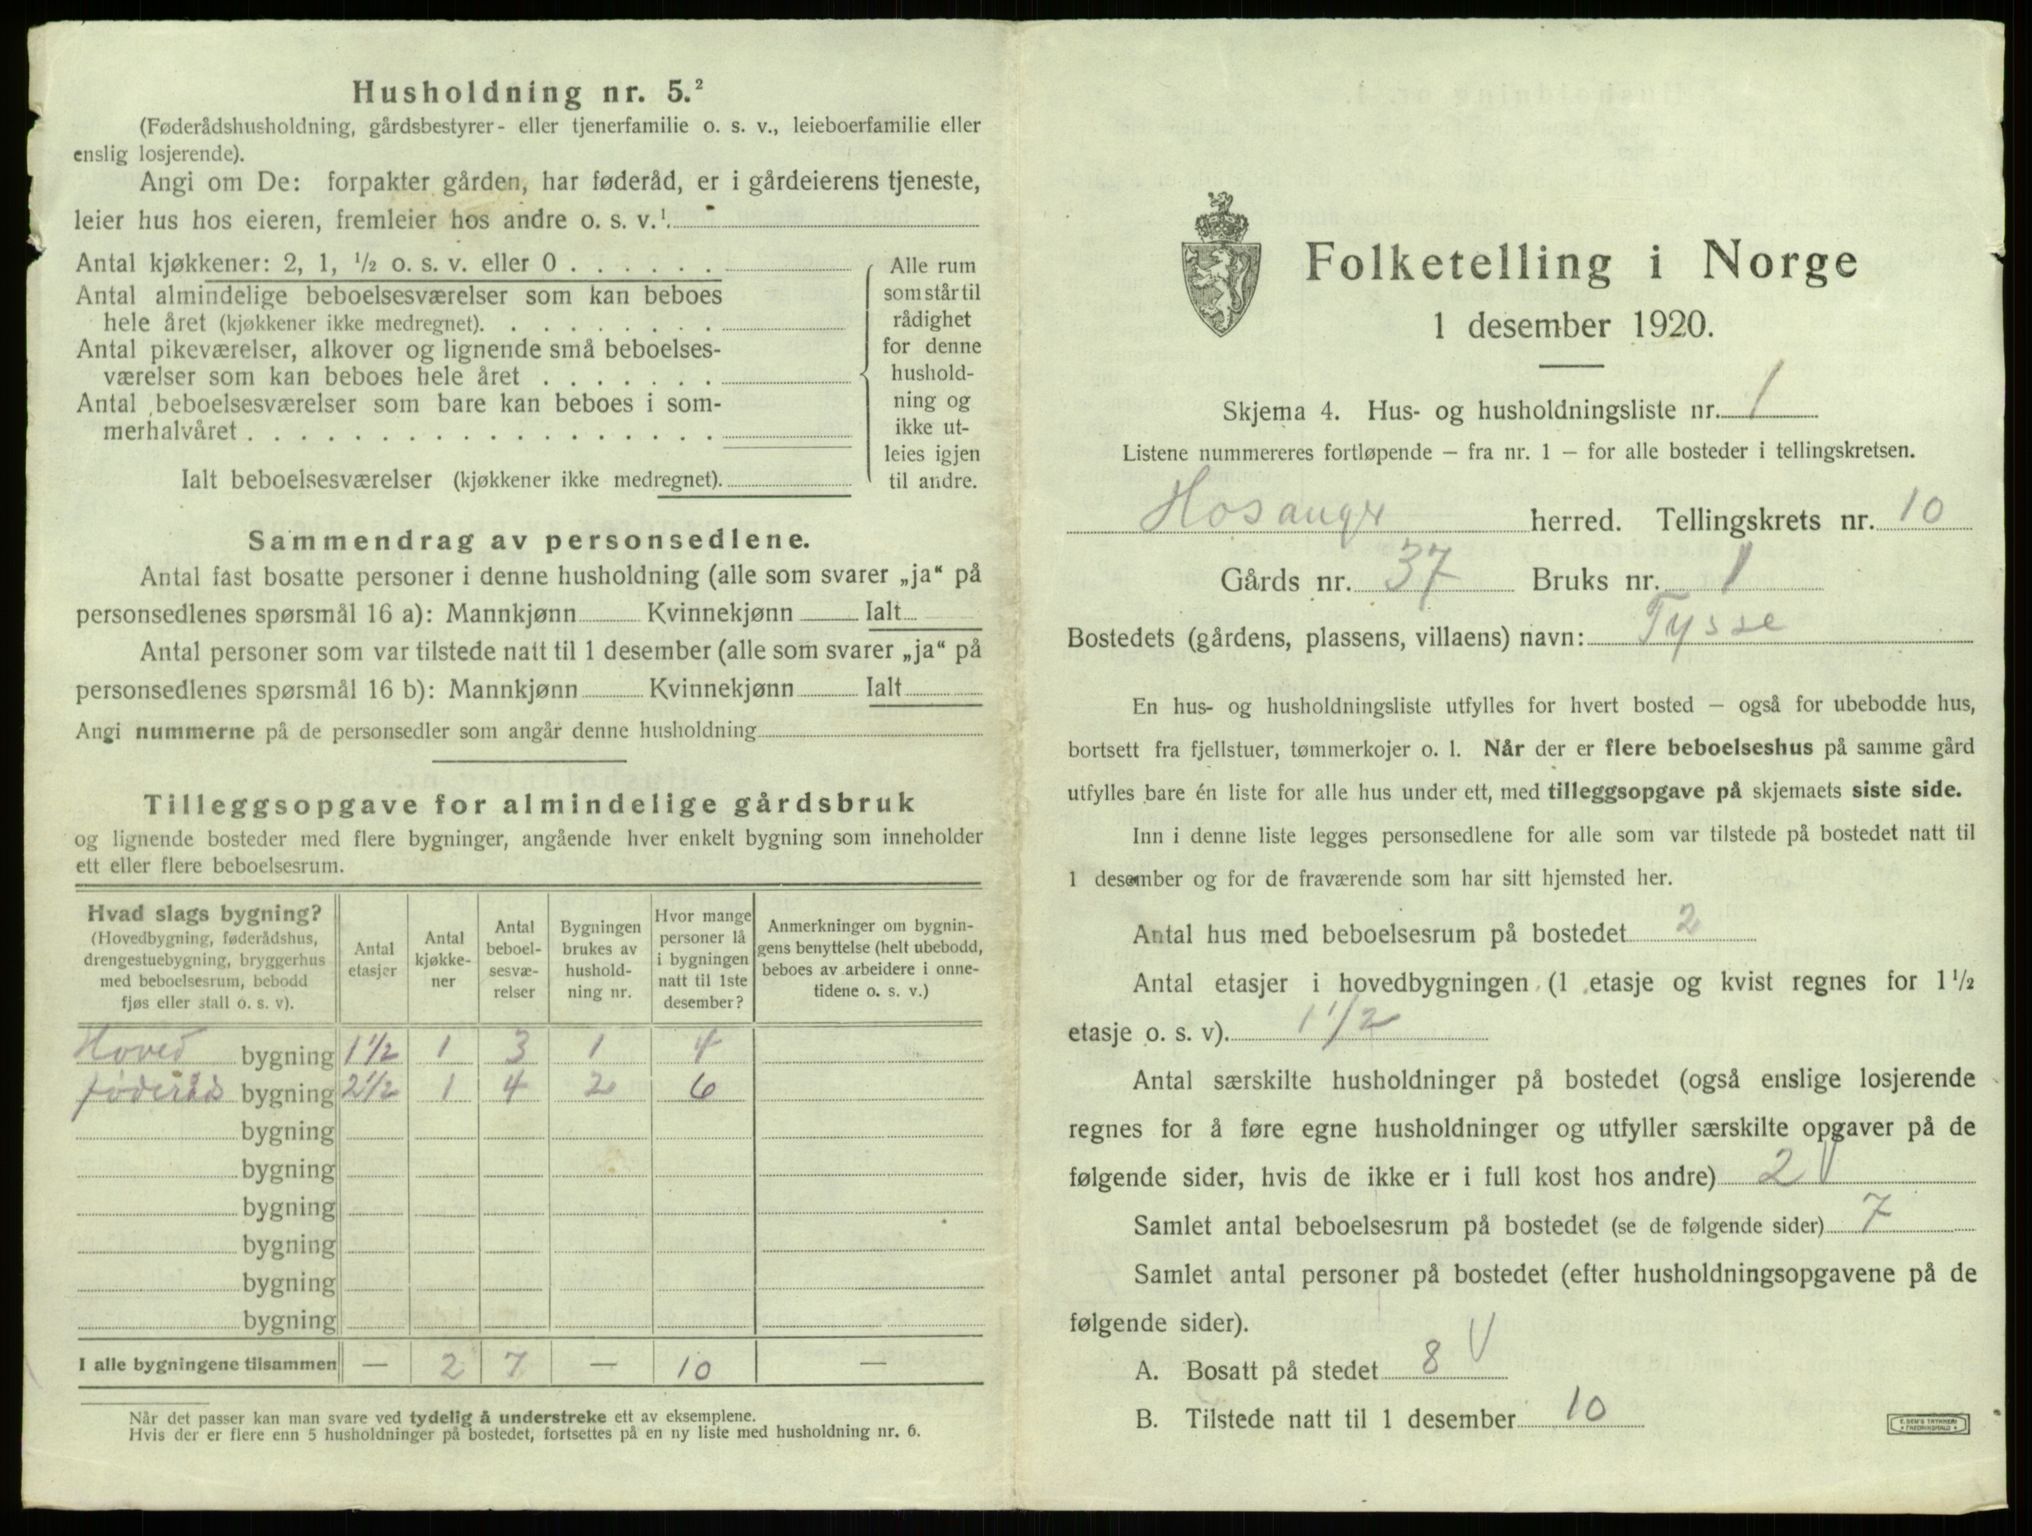 Husholdning nr. 5.²
(Føderådshusholdning, gårdsbestyrer- eller tjenerfamilie o. s. v., leieboerfamilie eller
enslig losjerende).
Angi om De: forpakter gården, har føderåd, er i gårdeierens tjeneste,
leier hus hos eieren, fremleier hos andre o. s. v.¹.
Antal kjøkkener: 2, 1, ½ o. s. v. eller 0 . . . . . .
Antal almindelige beboelsesværelser som kan beboes
hele året (kjøkkener ikke medregnet). . . . . . . . .
Antal pikeværelser, alkover og lignende små beboelses-
værelser som kan beboes hele året . . . . . . .
Antal beboelsesværelser som bare kan beboes i som-
merhalvåret . . . . . . . . . . . . . . . . . .
Ialt beboelsesværelser (kjøkkener ikke medregnet).
Alle rum
som står til
rådighet
for denne
hushold-
ning og
ikke ut-
leies igjen
til andre.
Sammendrag av personsedlene.
Antal fast bosatte personer i denne husholdning (alle som svarer „ja“ på
personsedlenes spørsmål 16 a): Mannkjønn Kvinnekjønn Ialt
Antal personer som var tilstede natt til 1 desember (alle som svarer „ja“ på
personsedlenes spørsmål 16 b): Mannkjønn Kvinnekjønn Ialt
Angi nummerne på de personsedler som angår denne husholdning
Tilleggsopgave for almindelige gårdsbruk
og lignende bosteder med flere bygninger, angående hver enkelt bygning som inneholder
ett eller flere beboelsesrum.
Hvad slags bygning?
(Hovedbygning, føderådshus,
drengestuebygning, bryggerhus
med beboelsesrum, bebodd
fjøs eller stall o. s. v).
Antal
etasjer
Antal
kjøkke-
ner
Antal
beboel-
sesvæ-
relser
Bygningen
brukes av
hushold-
ning nr.
Hvor mange
personer lå
i bygningen
natt til 1ste
desember?
Anmerkninger om bygnin-
gens benyttelse (helt ubebodd,
beboes av arbeidere i onne-
tidene o. s. v.)
Hoved bygning 1½ 1 3 1 4
føderåds bygning 2½ 1 4 2 6
bygning
bygning
bygning
bygning
bygning
bygning
I alle bygningene tilsammen — 2 7 — 10 —
Når det passer kan man svare ved tydelig å understreke ett av eksemplene.
Hvis der er flere enn 5 husholdninger på bostedet, fortsettes på en ny liste med husholdning nr. 6.
Folketelling i Norge
1 desember 1920.
Skjema 4. Hus- og husholdningsliste nr. 1
Listene nummereres fortløpende — fra nr. 1 — for alle bosteder i tellingskretsen.
Hosanger herred. Tellingskrets nr. 10
Gårds nr. 37 Bruks nr. 1
Bostedets (gårdens, plassens, villaens) navn: Tysse
En hus- og husholdningsliste utfylles for hvert bosted — også for ubebodde hus,
bortsett fra fjellstuer, tømmerkojer o. l. Når der er flere beboelseshus på samme gård
utfylles bare én liste for alle hus under ett, med tilleggsopgave på skjemaets siste side.
Inn i denne liste legges personsedlene for alle som var tilstede på bostedet natt til
1 desember og for de fraværende som har sitt hjemsted her.
Antal hus med beboelsesrum på bostedet 2
Antal etasjer i hovedbygningen (1 etasje og kvist regnes for 1½
etasje o. s. v). 1 1/2
Antal særskilte husholdninger på bostedet (også enslige losjerende
regnes for å føre egne husholdninger og utfyller særskilte opgaver på de
følgende sider, hvis de ikke er i full kost hos andre) 2 V
Samlet antal beboelsesrum på bostedet (se de følgende sider) 7
Samlet antal personer på bostedet (efter husholdningsopgavene på de
følgende sider).
A. Bosatt på stedet 8 V
B. Tilstede natt til 1 desember 10